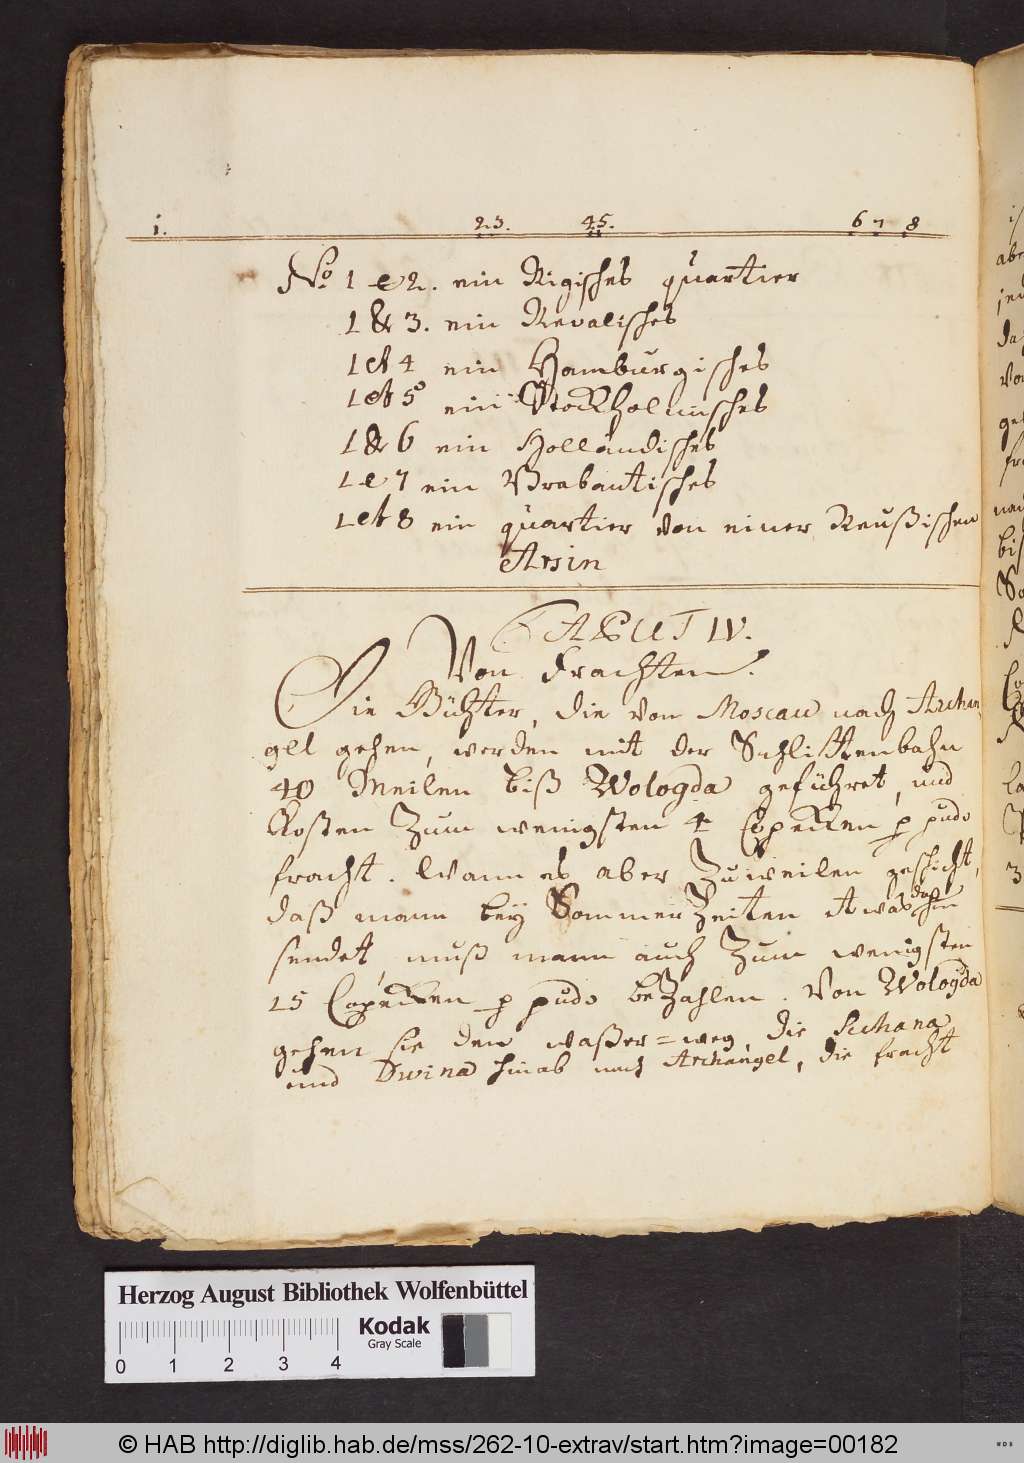 1. 23. 45. 6 7 8
No 1 et 2. ein Rigisches quartier
1 & 3. ein Revalisches
1 et 4 ein Hamburgisches
1 et 5 ein Stockholmisches
1 & 6 ein Holländisches
1 et 7 ein Brabantisches
1 et 8 ein quartier von einer Reußischen
Arsin
CAPUT IV.
Von Frachten.
Die Güther, die von Moscau nach Archan
gel gehen, werden mit der Schlittenbahn
40 Meilen biß Wologda geführet, und
kosten Zum wenigsten 4 Copecken p pudo
fracht. Wann es aber Zuweilen geschicht,
daß mann bey Sommer Zeiten etwas dahin
sendet, muß mann auch Zum wenigsten
15 Copecken p pudo beZahlen. Von Wologda
gehen sie den waßer=weg, die Suchana
und Dwina hinab nach Archangel, die fracht
Herzog August Bibliothek Wolfenbüttel
Kodak
Gray Scale
0 1 2 3 4
© HAB http://diglib.hab.de/mss/262-10-extrav/start.htm?image=00182